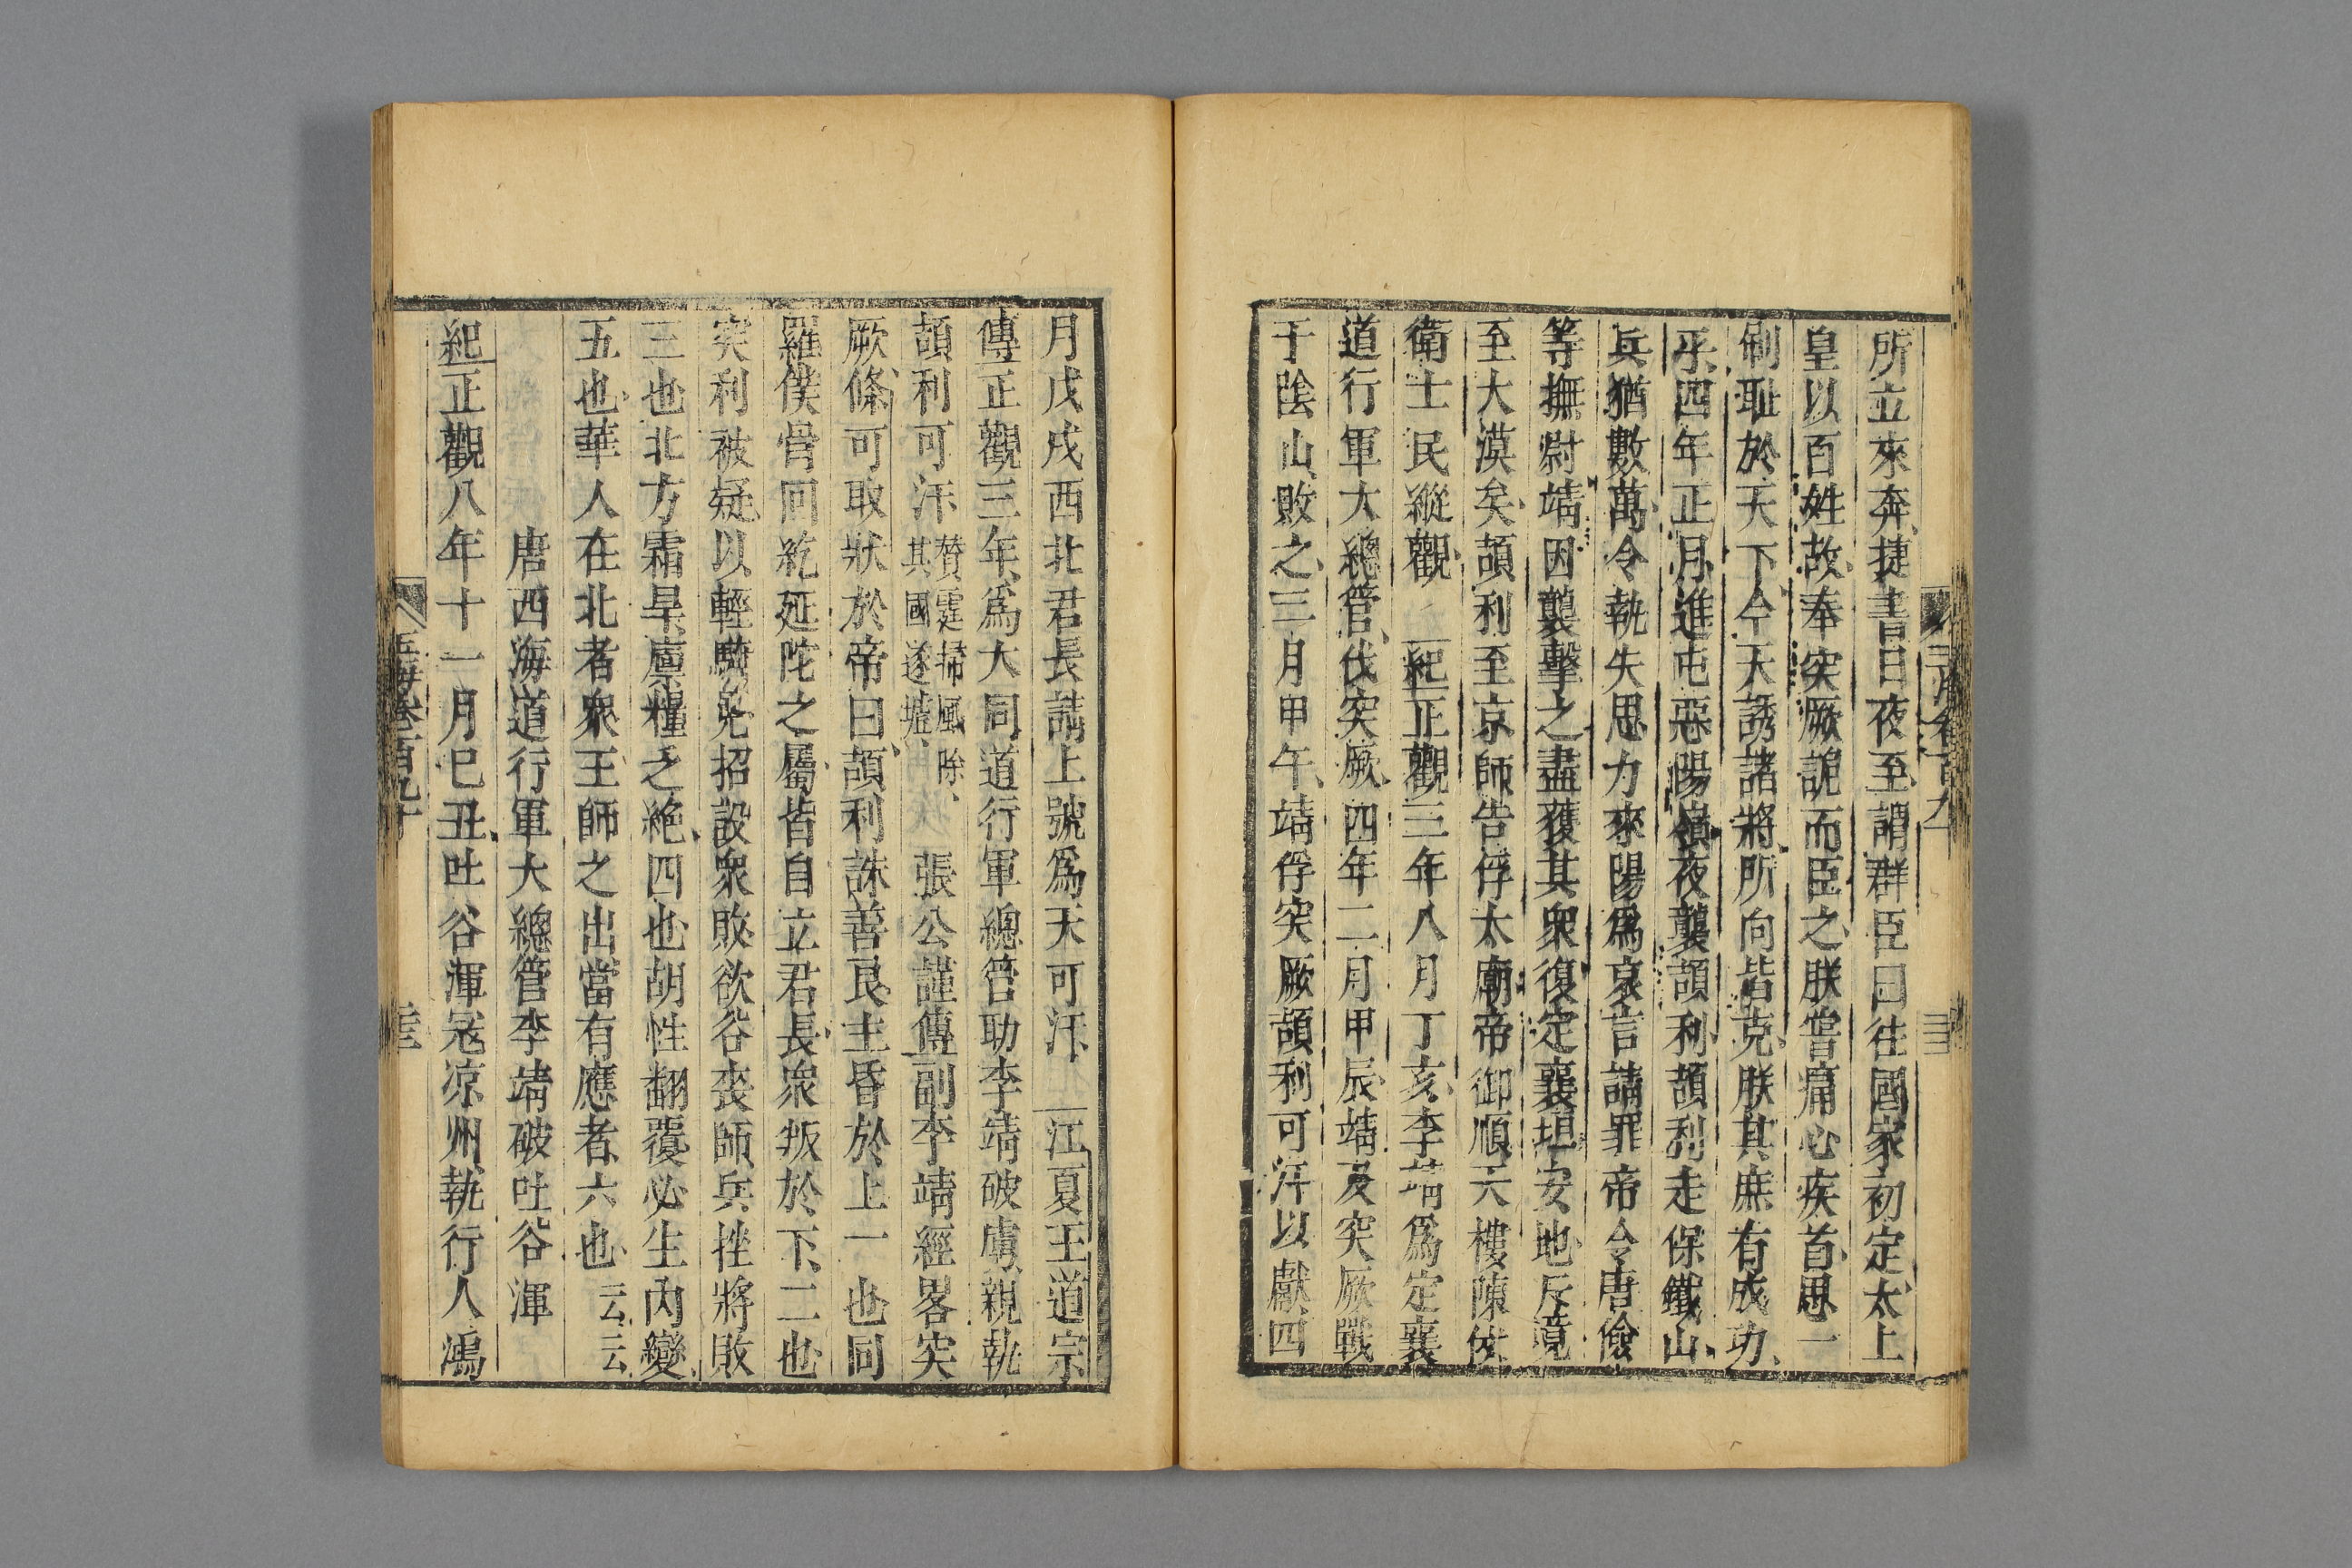 所立來奔捷書日夜至謂群臣曰往國家初定太上
皇以百姓故奉突厥詭而臣之朕嘗痛心疾首思一
刷耻於天下今天誘諸將所向皆克朕其庶有成功
乎四年正月進屯惡陽嶺夜襲頡利頡利走保鐵山
兵猶數萬令執失思力來陽爲哀言請罪帝令唐儉
等撫慰靖因襲擊之盡獲其衆復定襄垣安地斥境
至大漠矣頡利至京師告俘太廟帝御順天樓陳仗
衛士民縱觀 紀正觀三年八月丁亥李靖爲定襄
道行軍大總管伐突厥四年二月甲辰靖及突厥戰
于陰山敗之三月甲午靖俘突厥頡利可汗以獻四
月戊戌西北君長請上號爲天可汗 江夏王道宗
傳正觀三年爲大同道行軍總管助李靖破虜親執
頡利可汗 贊霆掃風除其國遂墟 張公謹傳副李靖經畧突
厥條可取狀於帝曰頡利誅善良主昏於上一也同
羅僕骨回紇延陀之屬皆自立君長衆叛於下二也
突利被疑以輕騎免招設衆敗欲谷喪師兵挫將敗
三也北方霜旱廩糧乏絶四也胡性翻覆必生內變
五也華人在北者衆王師之出當有應者六也云云
唐西海道行軍大總管李靖破吐谷渾
紀正觀八年十一月巳丑吐谷渾宼凉州執行人鴻
玉海卷一百九十